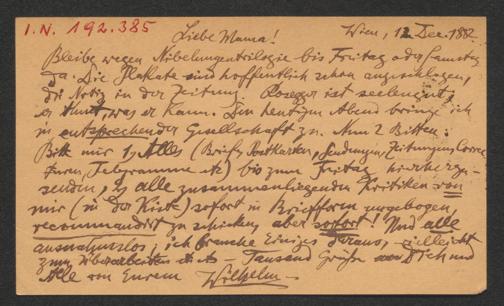 I.N. 192.385
Liebe Mama! Wien, 12 Dec. 1882
Bleibe wegen Nibelungentrilogie bis Freitag oder Samstag
da. Die Plakate sind hoffentlich schon angeschlagen,
die Notiz in der Zeitung. Rosegger ist seelengut,
er thut, was er kann. Den heutigen Abend bringe ich
in entsprechender Gesellschaft zu. Nun 2 Bitten:
Bitte mir 1) Alles (Briefe, Postkarten, Sendungen, Zeitungen, Correc
turen, Telegramme etc) bis zum Freitag hierherzu-
senden, 2) alle zusammenliegenden Kritiken von
mir (in der Kiste) sofort in Briefform umgebogen,
recommandirt zu schicken, aber sofort! Und alle
ausnahmslos, ich brauche Einiges daraus, vielleicht
zum Überarbeiten etc – Tausend Grüße an Dich und
Alle von Eurem Wilhelm